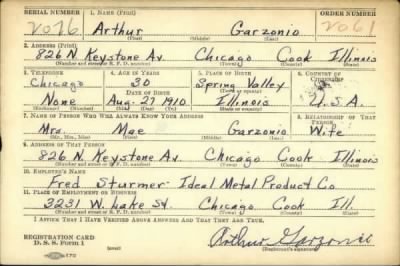 SERIAL NUMBER 1. NAME (Print) ORDER NUMBER
Arthur Garzonio
(First) (Middle) (Last)
2. ADDRESS (Print)
826 N. Keystone Av. Chicago Cook Illinois
(Number and street or R. F. D. number) (Town) (County) (State)
3. TELEPHONE 4. AGE IN YEARS 5. PLACE OF BIRTH 6. COUNTRY OF CITIZENSHIP
Chicago 30 Spring Valley
DATE OF BIRTH (Town or county)
None Aug. 27 1910 Illinois U.S.A.
7. NAME OF PERSON WHO WILL ALWAYS KNOW YOUR ADDRESS 8. RELATIONSHIP OF THAT PERSON
Mrs. Mae Garzonio Wife
(Mr., Mrs., Miss) (First) (Middle) (Last)
9. ADDRESS OF THAT PERSON
826 N. Keystone Av. Chicago Cook Illinois
(Number and street or R. F. D. number) (Town) (County) (State)
10. EMPLOYER'S NAME
Fred Sturmer Ideal Metal Product Co
11. PLACE OF EMPLOYMENT OR BUSINESS
3231 W. Lake St. Chicago Cook Ill.
(Number and street or R. F. D. number) (Town) (County) (State)
I AFFIRM THAT I HAVE VERIFIED ABOVE ANSWERS AND THAT THEY ARE TRUE.
REGISTRATION CARD
D. S. S. Form 1 Arthur Garzonio
(Registrant's signature)